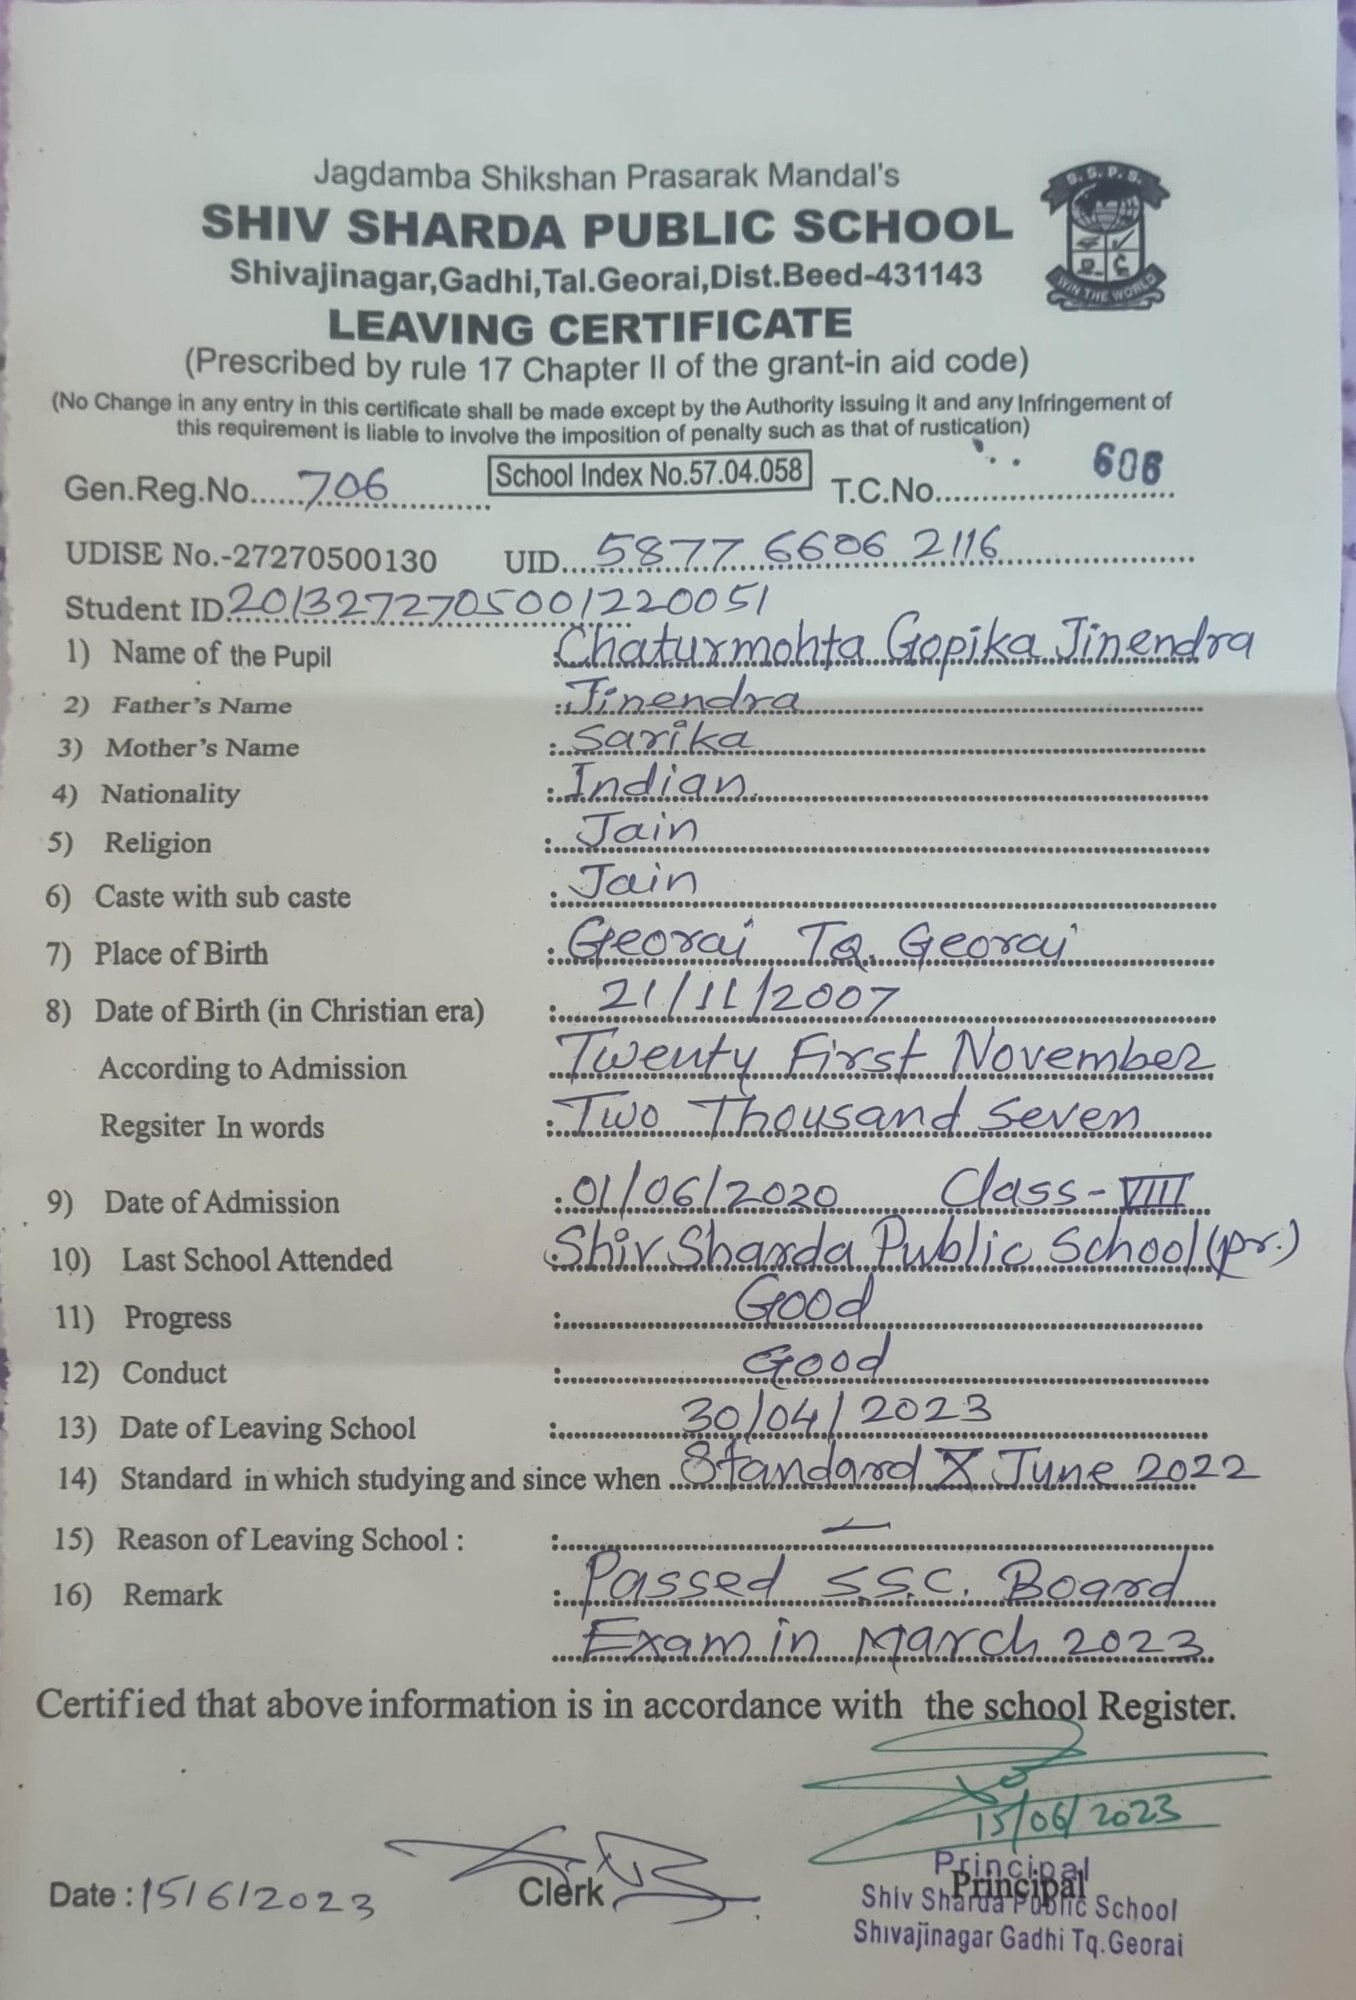 Jagdamba Shikshan Prasarak Mandal's
S. S. P. S.
SHIV SHARDA PUBLIC SCHOOL
Shivajinagar,Gadhi,Tal.Georai,Dist.Beed-431143
WIN THE WORLD
LEAVING CERTIFICATE
(Prescribed by rule 17 Chapter II of the grant-in aid code)
(No Change in any entry in this certificate shall be made except by the Authority issuing it and any Infringement of
this requirement is liable to involve the imposition of penalty such as that of rustication)
Gen.Reg.No......706 School Index No.57.04.058 T.C.No. 606
UDISE No.-27270500130 UID....5877 6606 2116
Student ID 2013272705001220051
1) Name of the Pupil : Chaturmohta Gopika Jinendra
2) Father's Name : Jinendra
3) Mother's Name : Sarika
4) Nationality : Indian.
5) Religion : Jain
6) Caste with sub caste : Jain
7) Place of Birth : Georai Tq. Georai
8) Date of Birth (in Christian era) : 21/11/2007
According to Admission Twenty First November
Regsiter In words : Two Thousand Seven
9) Date of Admission : 01/06/2020 Class-VIII
10) Last School Attended : Shiv Sharda Public School (pr.)
11) Progress : Good
12) Conduct : Good
13) Date of Leaving School : 30/04/2023
14) Standard in which studying and since when Standard X June 2022
15) Reason of Leaving School : : —
16) Remark : Passed S.S.C. Board
Exam in March 2023
Certified that above information is in accordance with the school Register.
15/06/2023
Date : 15/6/2023 Clerk Principal
Principal
Shiv Sharda Public School
Shivajinagar Gadhi Tq.Georai